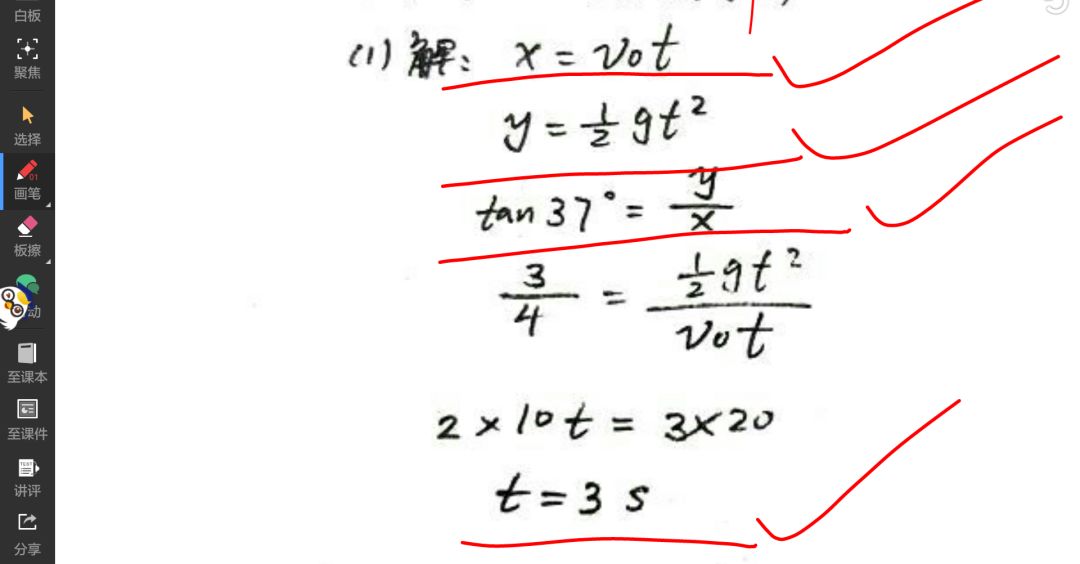 白板
聚焦
选择
01
画笔
板擦
动
至课本
至课件
TEST
讲评
分享
(1) 解: x = v₀t
y = ½ gt²
tan 37° = y/x
3/4 = ½gt²/v₀t
2 × 10t = 3×20
t = 3 s